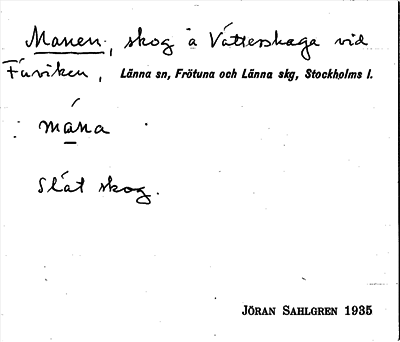 Manen, skog å Vätterskaga vid
Fårviken, Länna sn, Frötuna och Länna skg, Stockholms l.
: mána
Slät skog.
JÖRAN SAHLGREN 1935